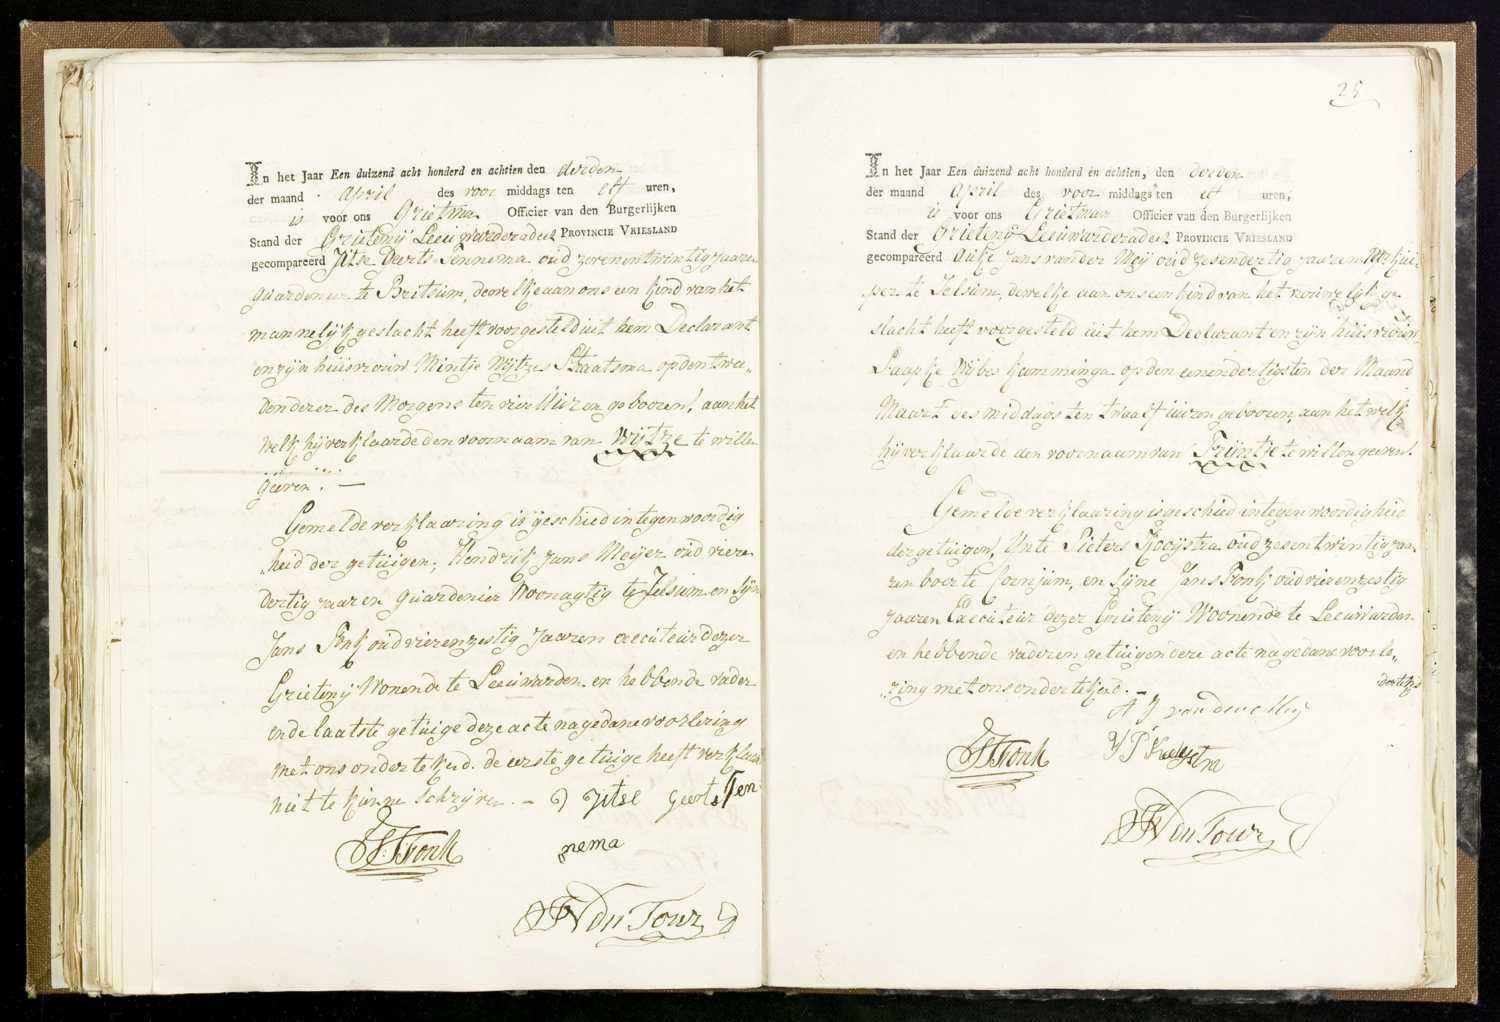 In het Jaar Een duizend acht honderd en achtien den derden
der maand April des voor middags ten elf uren,
is voor ons Grietman Officier van den Burgerlijken
Stand der Grietenij Leeuwarderadeel PROVINCIE VRIESLAND
gecompareerd Jitse Geerts Tennema oud zevenentwintig jaaren
gaardenier te Britsum, dewelke aan ons een kind van het
mannelijk geslacht heeft voorgesteld uit hem Declarant
en zijn huisvrouw Mintje Wijtzes Straatsma op den twee-
den dezer des Morgens ten vier uuren gebooren, aan het
welk hij verklaarde den voornaam van Wijtze te willen
geeven. —
Gemelde verklaaring is geschied in tegenwoordig
heid der getuigen, Hendrik Jans Meijer oud viere
dertig jaaren Gaardenier Woonagtig te Jelsum en Sijne
Jans Fonk oud vierenzestig Jaaren executeur dezer
Grietenij Wonende te Leeuwarden en hebbende vader
en de laatste getuige deze acte na gedane voorlezing
met ons ondertekend. de eerste getuige heeft verklaard
niet te kunne schrijven. — Jitse Geerts Ten
nema
S J Fonk
du Tour
25
In het Jaar Een duizend acht honderd en achtien, den derden
der maand April des voor middags ten elf uren,
is voor ons Grietman Officier van den Burgerlijken
Stand der Grietenij Leeuwarderadeel PROVINCIE VRIESLAND
gecompareerd Auke Jans van der Meij oud zesendertig jaaren Kui-
per te Jelsum, dewelke aan ons een kind van het vrouwelijk ge-
slacht heeft voorgesteld uit hem Declarant en zijn huisvrouw
Saapke Wijbes Kamminga op den eenendertigsten der Maand
Maart des middags ten twaalf uuren gebooren, aan het welk
hij verklaarde den voornaam van Trijntje te willen geeven.
Gemelde verklaaring is geschied in tegenwoordigheid
der getuigen, Unte Pieters Kooijstra oud zesentwintig jaa-
ren boer te Cornjum, en Sijne Jans Fonk oud vierenzestig
jaaren Executeur dezer Grietenij Woonende te Leeuwarden
en hebbende vader en getuigen deze acte na gedane voorle-
zing met ons ondertekend. —
A J van der Meij
S J Fonk
U P Kooijstra
du Tour